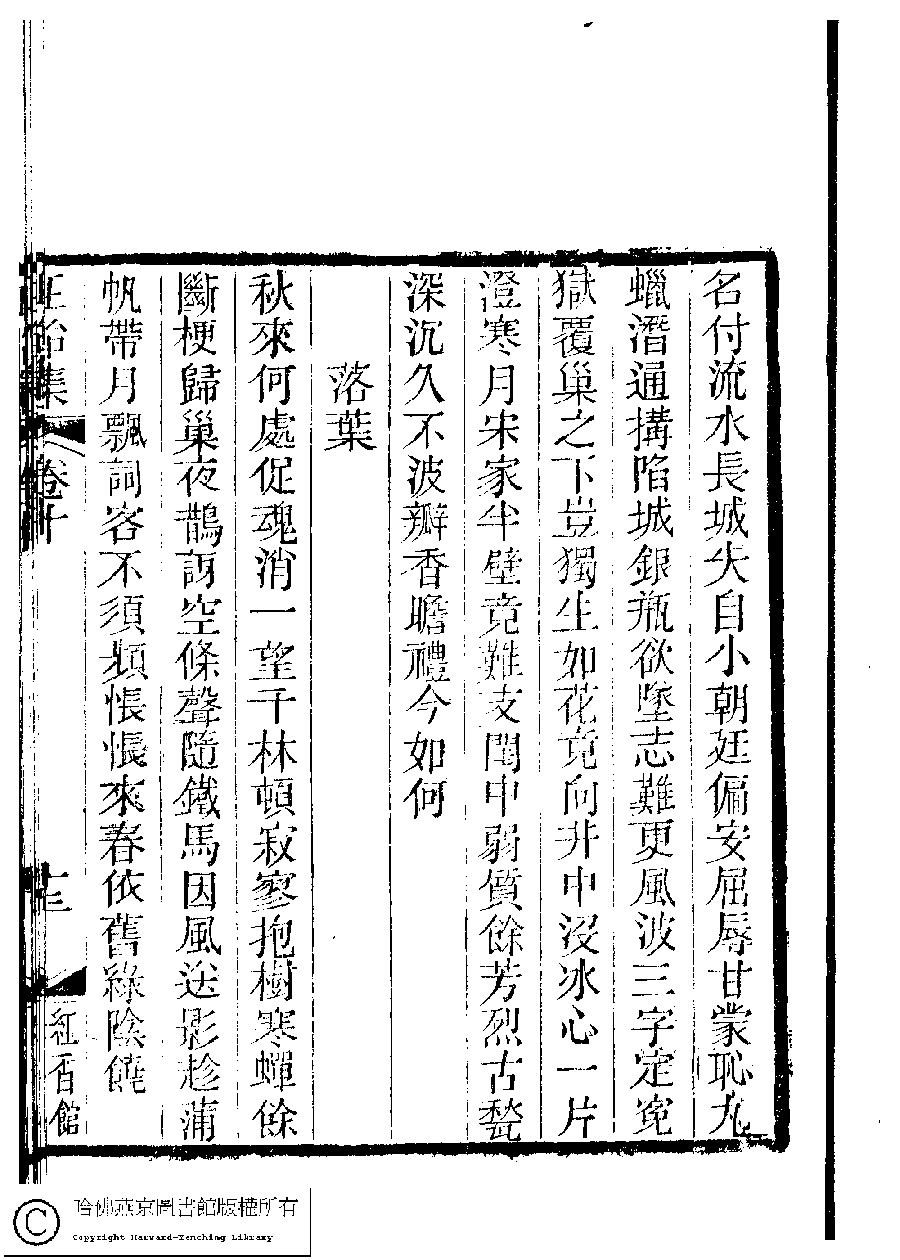 名付流水長城失自小朝廷偏安屈辱甘蒙恥九
蠟潛通搆陷城銀瓶欲墜志難更風波三字定寃
獄覆巢之下豈獨生如花竟向井中沒冰心一片
澄寒月宋家半壁竟難支閨中弱質餘芳烈古甃
深沉久不波瓣香瞻禮今如何
落葉
秋來何處促魂消一望千林頓寂寥抱樹寒蟬餘
斷梗歸巢夜鵲訝空條聲隨鐵馬因風送影趁蒲
帆帶月飄詞客不須頻悵悵來春依舊綠陰饒
集 卷十 十三 紅香館
哈佛燕京圖書館版權所有
Copyright Harvard-Yenching Library